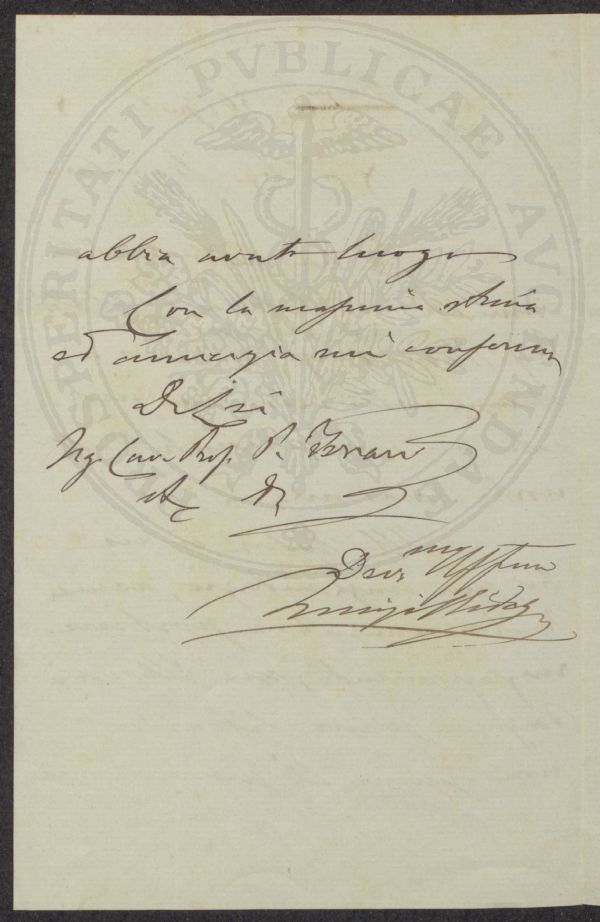 PROSPERITATI PVBLICAE AVGENDAE
abbia avuto luogo
Con la massima stima
ed mi confermo
Di Lei
Cav. Prof. P.
Dev.mo
Luigi